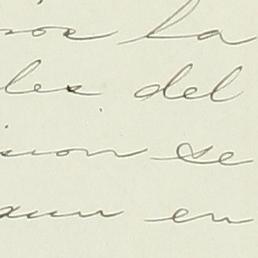 la
les del
sion se
aun en